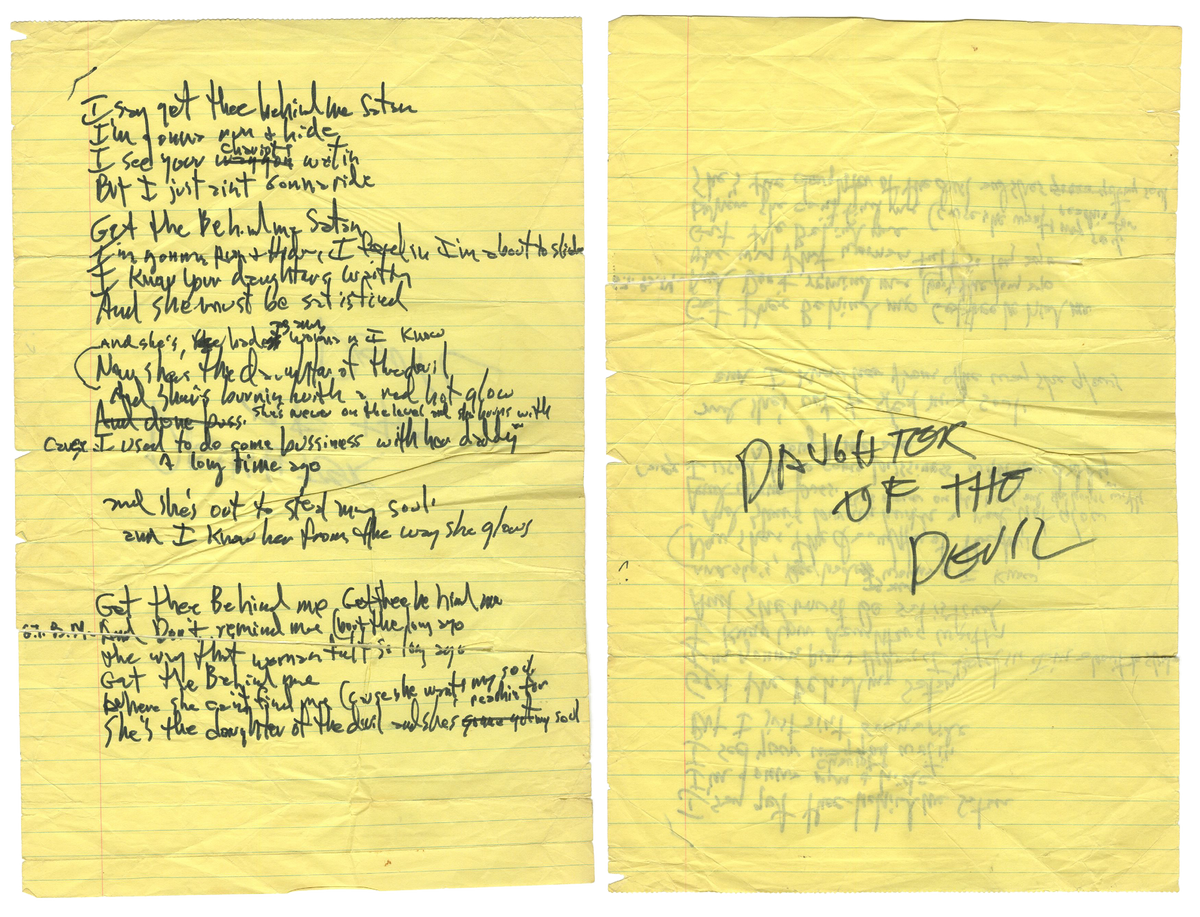 I say get thee behind me Satan
I'm gonna run + hide
I see your chariots waitin
But I just aint gonna ride
Get the Behind me Satan
I'm gonna Run + Hide, I feel in I'm about to slide
I Know your daughters waitin
And she must be satisfied
And she's, the baddest woman I Know
Now she's the Daughter of the devil
And she's burnin with a red hot glow
And done pass. she's never on the level and she burns with
Cause I used to do some bussiness with her daddy
A long time ago
and she's out to steal my soul
and I Know her from the way she glows
Get thee Behind me Get thee behind me
And Don't remind me bout the long ago
the way that woman felt so long ago
Get the Behind me
Where she can't find me (cause she wants my soul
reachin for
She's the daughter of the devil and she's gonna get my soul
DAUGHTER
OF THE
DEVIL